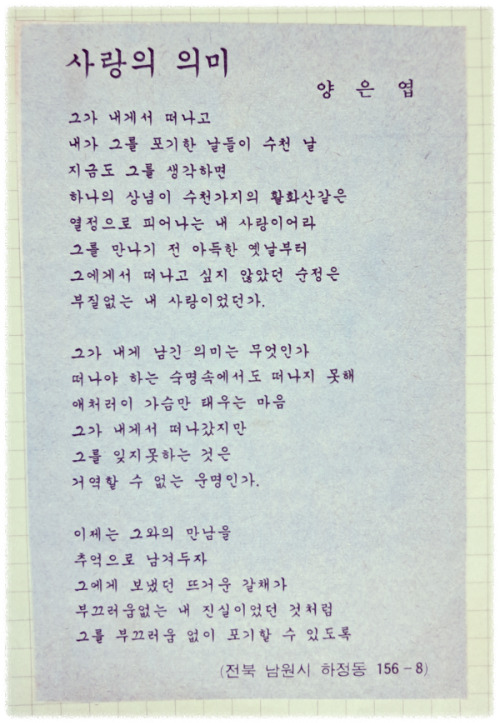 사랑의 의미
양 은 엽
그가 내게서 떠나고
내가 그를 포기한 날들이 수천 날
지금도 그를 생각하면
하나의 상념이 수천가지의 활화산같은
열정으로 피어나는 내 사랑이어라
그를 만나기 전 아득한 옛날부터
그에게서 떠나고 싶지 않았던 순정은
부질없는 내 사랑이었던가.
그가 내게 남긴 의미는 무엇인가
떠나야 하는 숙명속에서도 떠나지 못해
애처러이 가슴만 태우는 마음
그가 내게서 떠나갔지만
그를 잊지못하는 것은
거역할 수 없는 운명인가.
이제는 그와의 만남을
추억으로 남겨두자
그에게 보냈던 뜨거운 갈채가
부끄러움없는 내 진실이었던 것처럼
그를 부끄러움 없이 포기할 수 있도록
(전북 남원시 하정동 156-8)